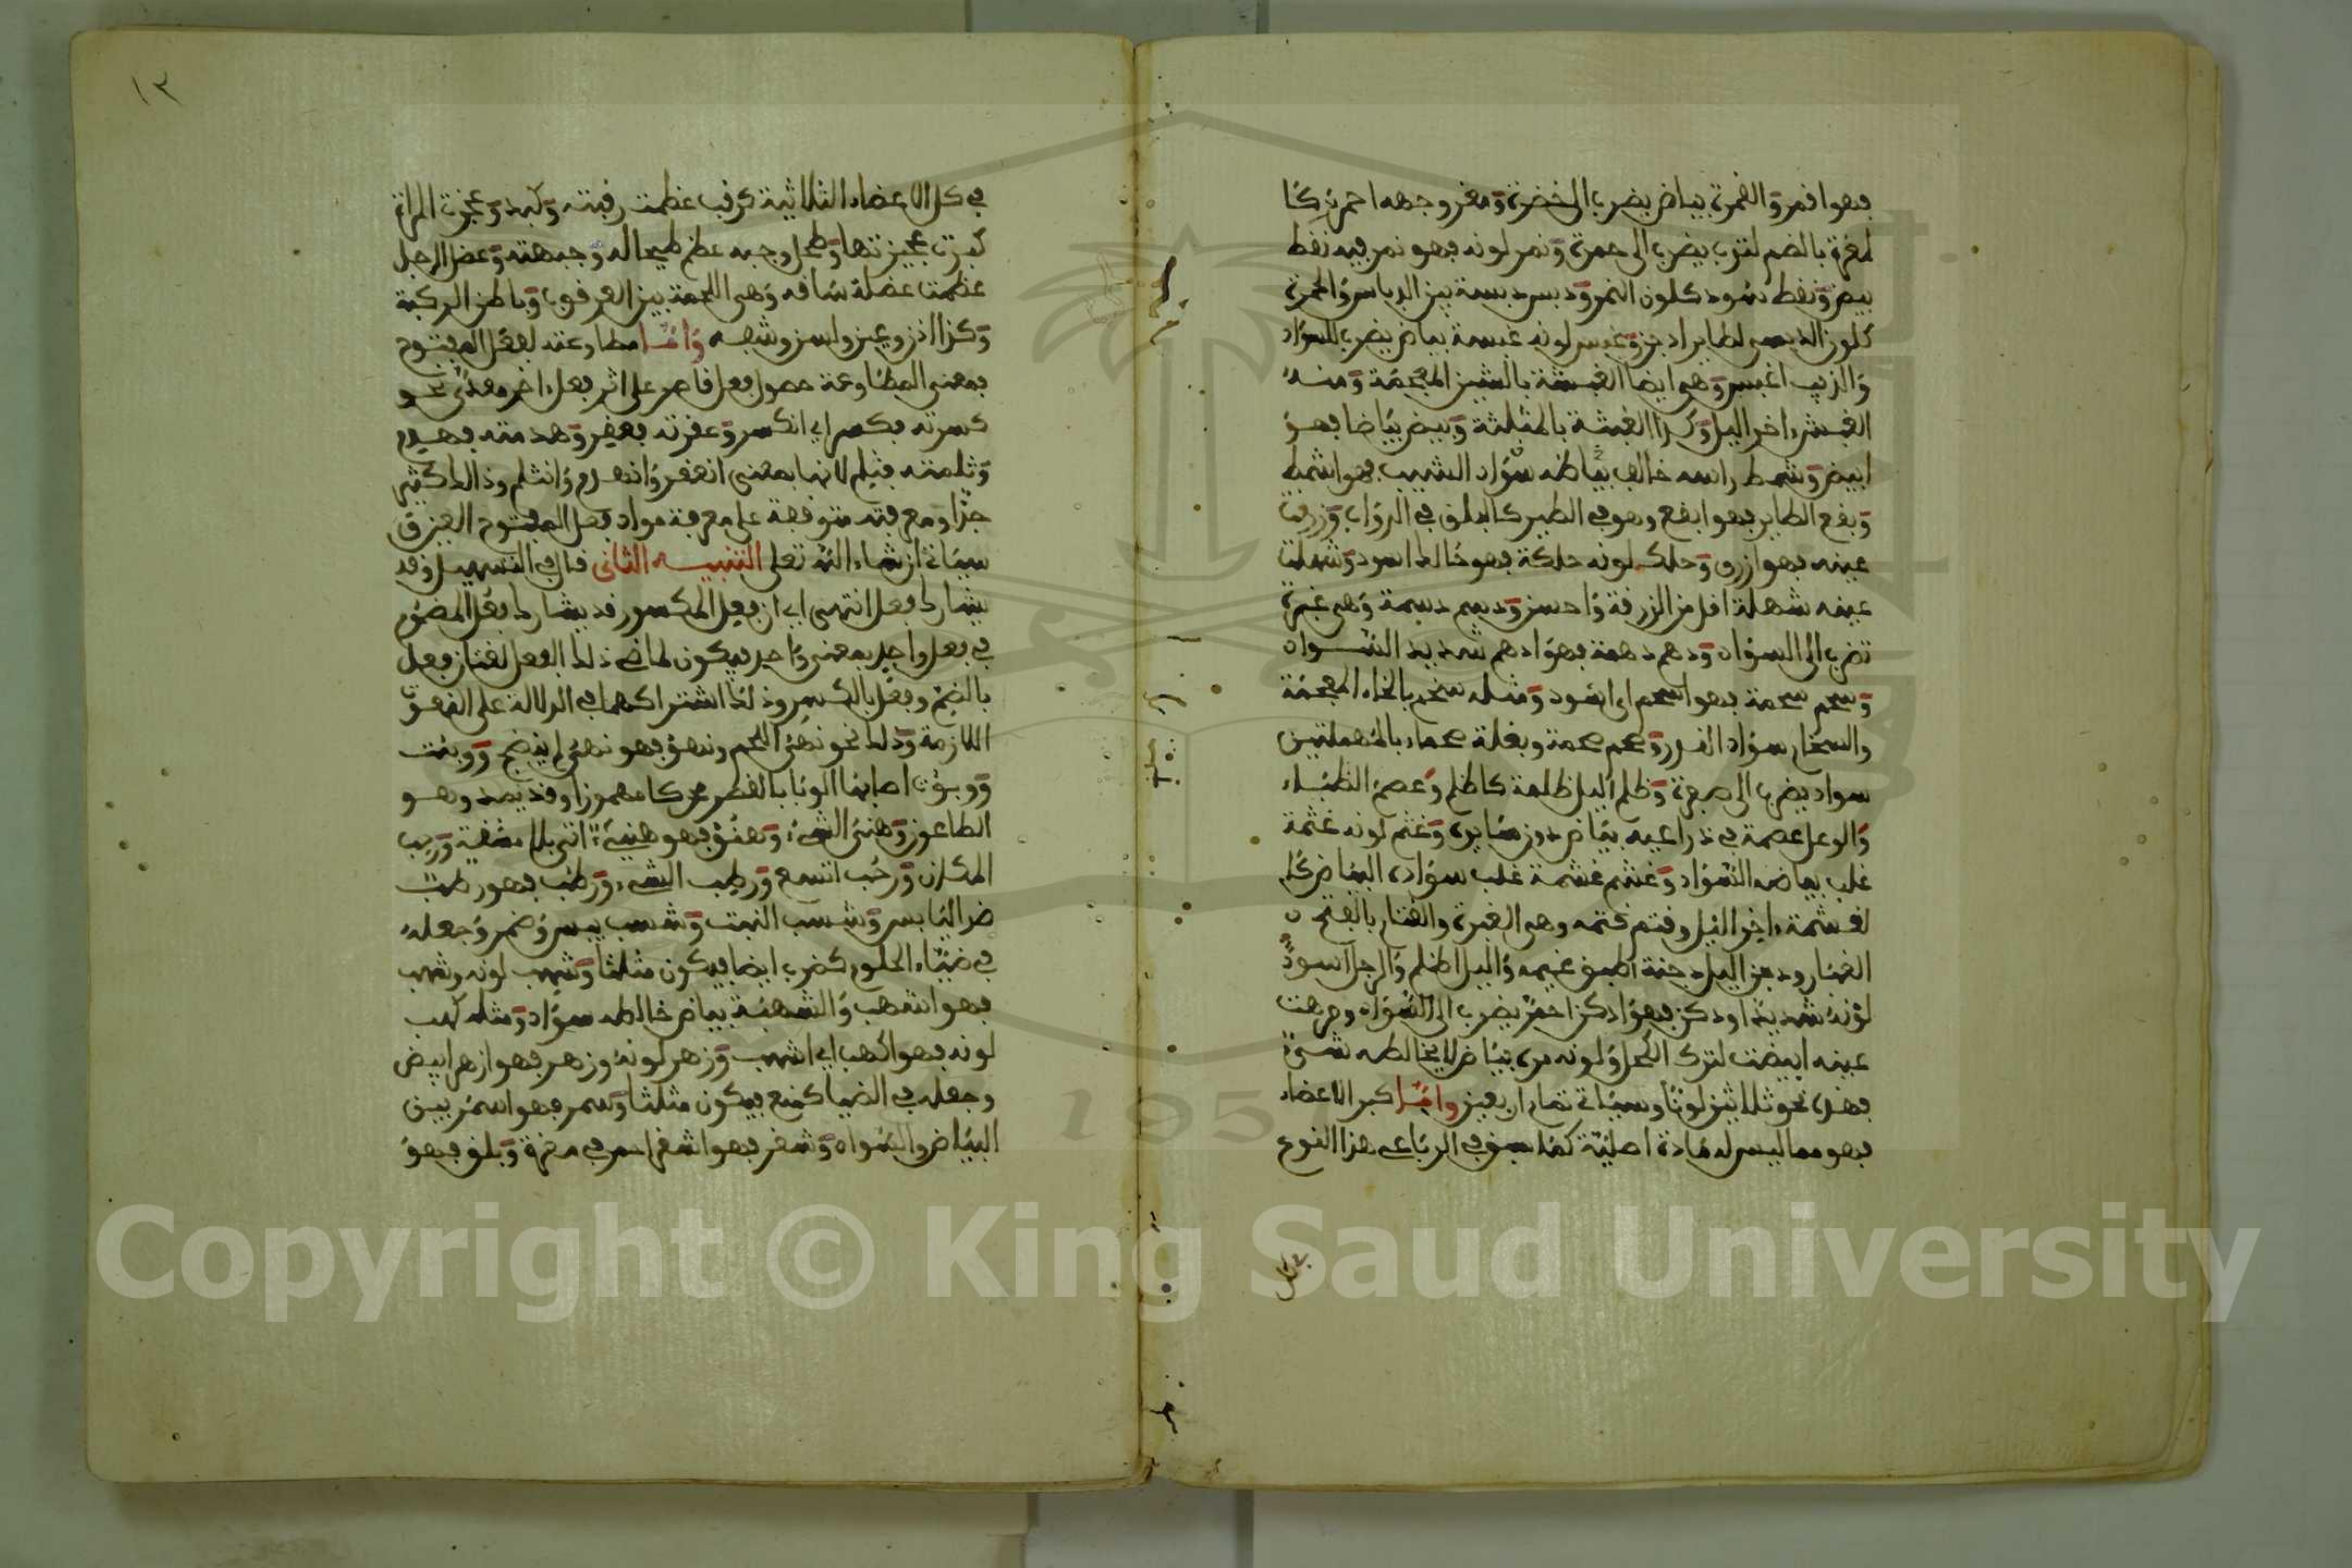 فهو اقمر والقمرة بياض يضرب الى خضرة ومغر وجهه احمر كا
لمغرة بالضم لترب يضرب الى حمرة ونمر لونه فهو نمر فيه نقط
بيض ونقط سود كلون النمر ودبس دبسة بين السواد والحمرة
كلون الدبسي لطاير ادبس وغبس لونه غبسة بياض يضرب للسواد
والذيب اغبس وهي ايضا الغبشة بالشين المعجمة ومنه
الغبش ءاخر اليل وكذا الغبثة بالمثلثة وبيض بياضا فهو
ابيض وشمط راسه خالف بياضه سواد الشيب فهو اشمط
وبقع الطاير فهو ابقع وهو في الطير كالبلق في الدواب وزرقت
عينه فهو ازرق وحلك لونه حلكة فهو حالك اسود وشهلت
عينه شهلة اقل من الزرقة واحسن ودسم دسمة وهي غبرة
تضرب الى السواد ودهم دهمة فهو ادهم شديد السواد
وسحم سحمة فهو اسحم اي اسود ومثله سخم بالخاء المعجمة
والسخام سواد القدر وصحم صحمة وبغلة صحماء بالمهملتين
سواد يضرب الى صفرة وظلم اليل ظلمة كاظلم وعصم الظباء
والوعل عصمة في ذراعيه بياض دون سايره وغثم لونه غثمة
غلب بياضه السواد وغشم غشمة غلب سواده البياض كا
لغشمة ءاخر اليل وقتم قتمه وهي الغبرة والقتام بالفتح
الغبار ودجن اليل دجنة اطبق غيمه واليل اظلم والرجل اسود
لونه شديدا ودكن فهو ادكن احمر يضرب الى السواد ومرهت
عينه ابيضت لترك الكحل ولونه مره بياض لا يخالطه شيء
فهذه نحو ثلاثين لونا وسياتي تمام اربعين واما كبر الاعضاء
فهو مما ليس له مادة اصلية كما سبق في الرباعي هذا النوع
١٣
في كل الاعضاء الثلاثية كرقب عظمت رقبته وكبد وعجزت المراة
كبرت عجيزتها وطحل وجبه عظم طحاله وجبهته وعضل الرجل
عظمت عضلة ساقه وهي اللحمة بين العرقوب وباطن الركبة
وكذا اذن وعين ولسن وشفه واما مطاوعته لفعل المفتوح
فمعنى المطاوعة حصول فعل قاصر على اثر فعل ءاخر معدى نحو
كسرته فكسر اي انكسر وعقرته فعقر وهدمته فهدم
وثلمته فثلم لانها بمعنى انعقر وانهدم وانثلم وذالك كثير
جدا ومعرفته متوقفة على معرفة مواد فعل المفتوح العين ق
سياتي ان شاء الله تعلى التنبيه الثاني قال في التسهيل وقد
يشارك فعل انتهى اي ان فعل المكسور قد يشارك فعل المضموم
في فعل واحد بمعنى واحد فيكون لماضي ذلك الفعل لغتان فعل
بالضم وفعل بالكسر وذلك اشتراكهما في الدلالة على النعوت
اللازمة وذلك نحو نهئ اللحم ونهؤ فهو نهئ لم ينضج ووبئت
ووبؤت اصابها الوبا بالقصر محركا مهموزا وقد يمد وهو
الطاعون وهنئ الشيء وهنؤ فهو هنيء اتى بلا مشقة ورحب
المكان ورحب اتسع ورطب الشيء ورطب فهو رطب
ضد اليابس وشسب النبت وشسب يبس وضمر وجعله
في ضياء الحلوم كضرب ايضا فيكون مثلثا وشهب لونه وشهب
فهو اشهب والشهبة بياض خالطه سواد ومثله كهب
لونه فهو اكهب اي اشهب وزهر لونه وزهر فهو ازهر ابيض
وجعله في الضيا كمنع فيكون مثلثا وسمر فهو اسمر بين
البياض والسواد وشقر فهو اشقر احمر في مغرة وبلق فهو